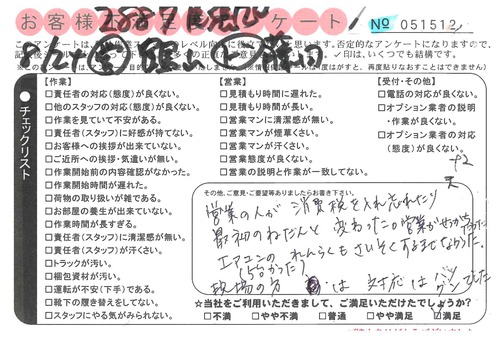 お客様
ケート!
No 051512
アンケートは、
レベル向上に役立て
思います。否定的なアンケートになりますので、
印は、いくつでも結構です。
チェックリスト
【作業】
□責任者の対応(態度)が良くない。
□他のスタッフの対応(態度)が良くない。
□作業を見ていて不安がある。
□責任者(スタッフ)に好感が持てない。
□お客様への挨拶が出来ていない。
□ご近所への挨拶・気遣いが無い。
□作業開始前の内容確認がなかった。
□作業開始時間が遅れた。
□荷物の取り扱いが雑である。
□お部屋の養生が出来ていない。
□作業時間が長すぎる。
□責任者(スタッフ)に清潔感が無い。
□責任者(スタッフ)が汗くさい。
□トラックが汚い。
□梱包資材が汚い。
□運転が不安(下手)である。
□靴下の履き替えをしてない。
□スタッフにやる気がみられない。
【営業】
□見積もり時間に遅れた。
□見積もり時間が長い。
□営業マンに清潔感が無い。
□営業マンが煙草くさい。
□営業マンが汗くさい。
□営業態度が良くない。
□営業の説明と作業が一致してない。
【受付・その他】
□電話の対応が良くない。
□オプション業者の説明
・作業が良くない。
□オプション業者の対応
(態度)が良くない。
その他、ご意見・ご要望等ありましたらお書き下さい。
営業の人が 消費税を入れ忘れたり
最初のねだんと 変わった。営業が
エアコンの れんらくもさいそくするまでなかった。
現場の方 は 対応は バツグンでした
☆当社をご利用いただきまして、ご満足いただけたでしょうか?
□不満 □やや不満 □普通 □やや満足 □満足